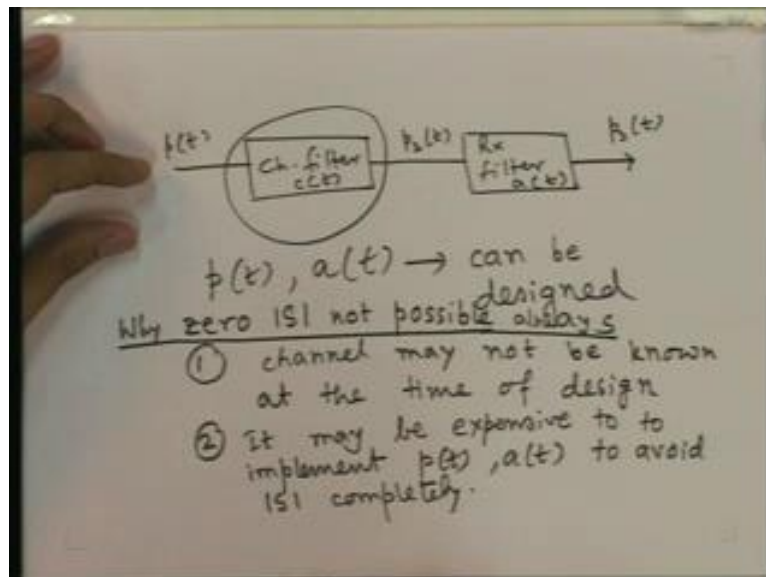 p(t)
Ch. filter
c(t)
p₂(t)
Rx
filter
a(t)
p₃(t)
p(t), a(t) → can be
designed
Why zero ISI not possible always
① channel may not be known
at the time of design
② It may be expensive to to
implement p(t), a(t) to avoid
ISI completely.